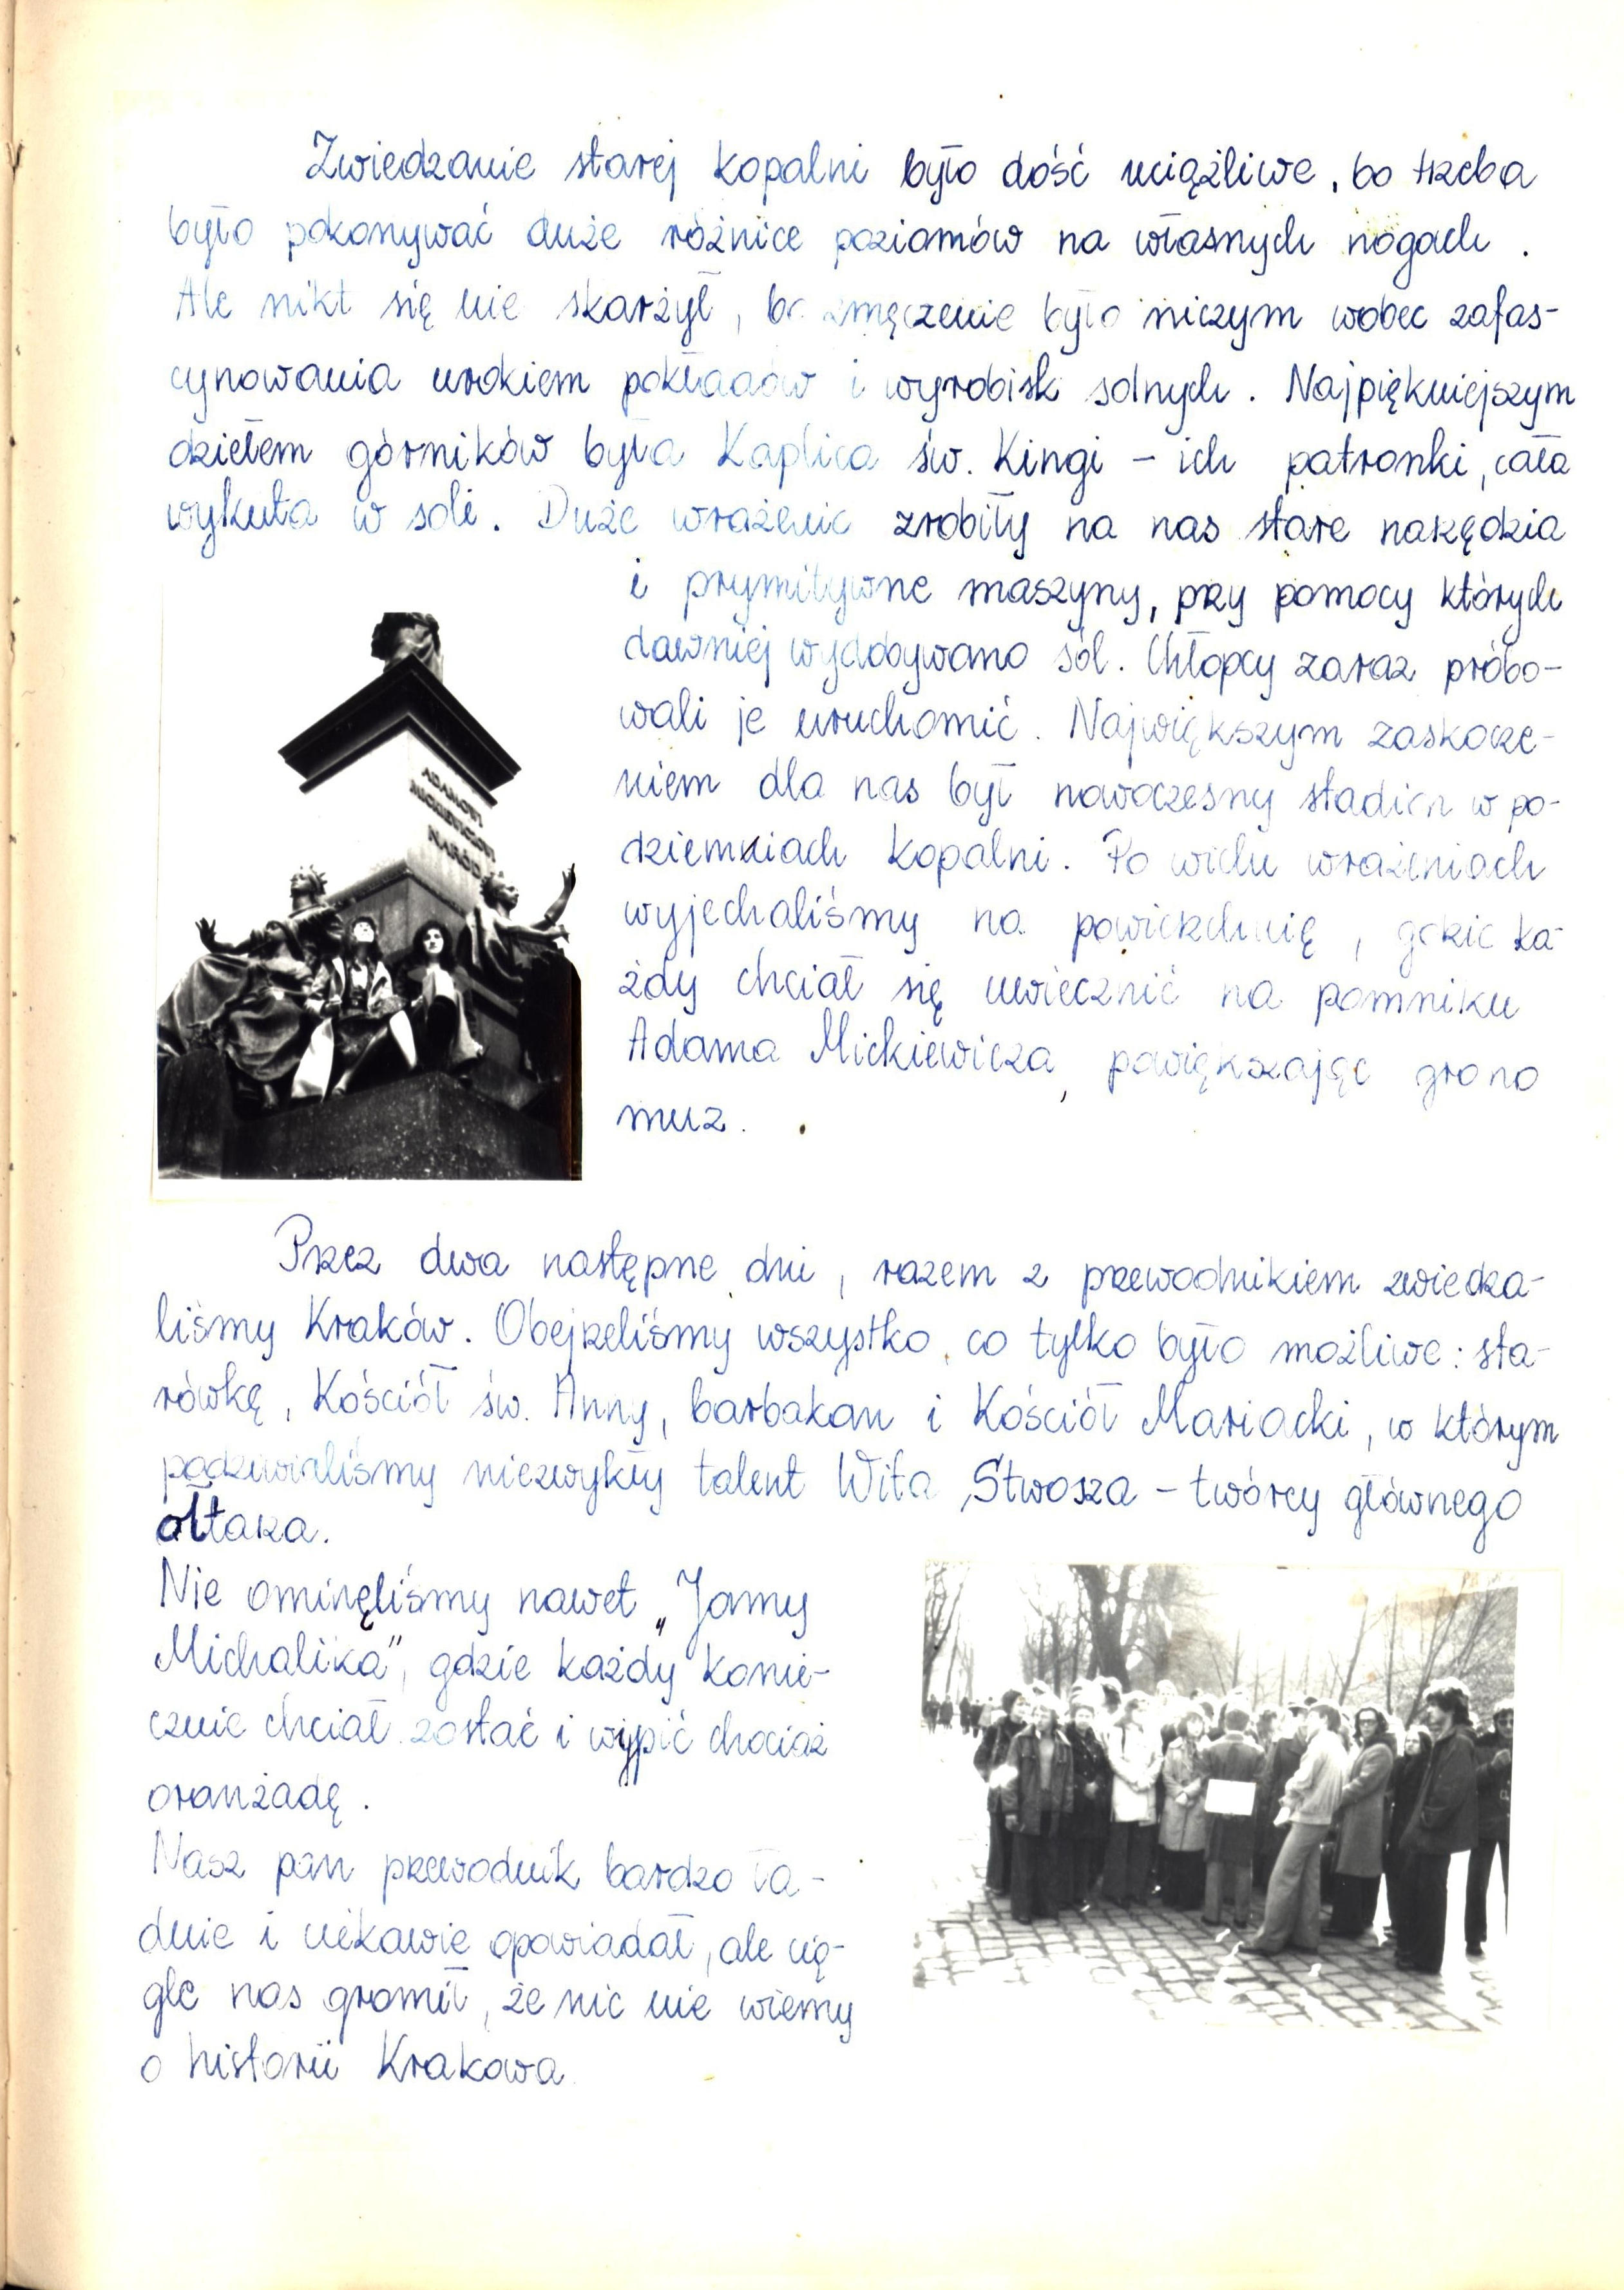 Zwiedzanie starej kopalni było dość uciążliwe, bo trzeba
było pokonywać duże różnice poziomów na własnych nogach.
Ale nikt się nie skarżył, bo zmęczenie było niczym wobec zafas-
cynowania urokiem pokładów i wyrobisk solnych. Najpiękniejszym
dziełem górników była Kaplica św. Kingi - ich patronki, cała
wykuta w soli. Duże wrażenie zrobiły na nas stare narzędzia
i prymitywne maszyny, przy pomocy których
dawniej wydobywano sól. Chłopcy zaraz próbo-
wali je uruchomić. Największym zaskocze-
niem dla nas był nowoczesny stadion w po-
dziemiach kopalni. Po wielu wrażeniach
wyjechaliśmy na powierzchnię, gdzie ka-
żdy chciał się uwiecznić na pomniku
Adama Mickiewicza, powiększając grono
muz.
ADAMOWI
MICKIEWICZOWI
NARÓD
Przez dwa następne dni, razem z przewodnikiem zwiedza-
liśmy Kraków. Obejrzeliśmy wszystko, co tylko było możliwe: sta-
rówkę, Kościół św. Anny, barbakan i Kościół Mariacki, w którym
podziwialiśmy niezwykły talent Wita Stwosza - twórcy głównego
ołtarza.
Nie ominęliśmy nawet „Jamy
Michalika", gdzie każdy konie-
cznie chciał zostać i wypić chociaż
oranżadę.
Nasz pan przewodnik bardzo ła-
dnie i ciekawie opowiadał, ale cią-
gle nas gromił, że nic nie wiemy
o historii Krakowa